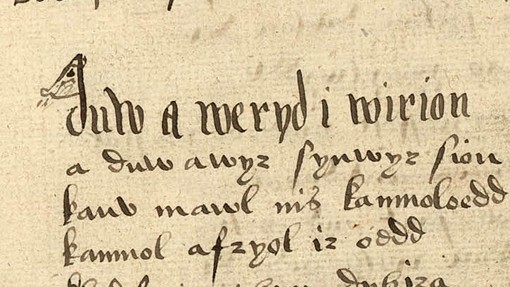 duw a weryd i wirion
a duw a wyr synwyr sion
kanv mawl nis kanmoloedd
kanmol afryol ir oedd